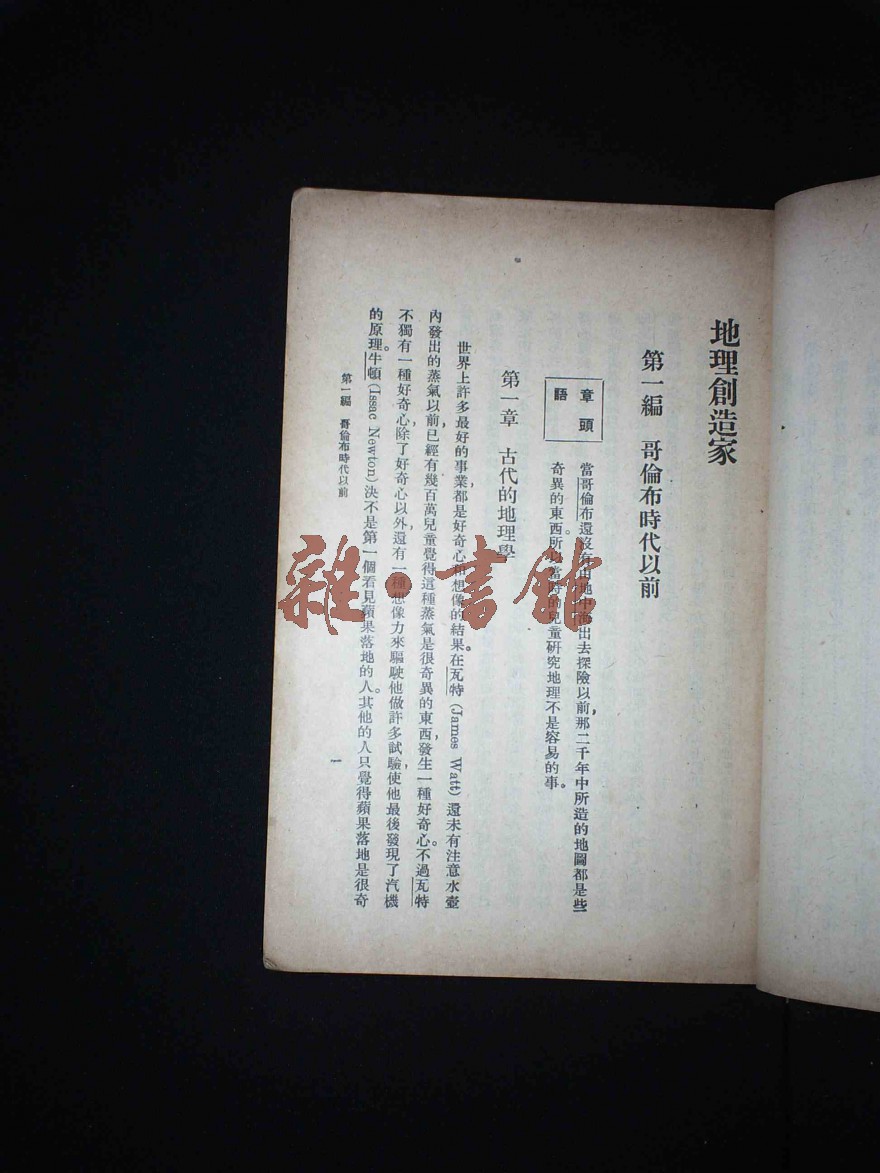 地理創造家
第一編　哥倫布時代以前
章頭語
當哥倫布還沒有由地中海出去探險以前,那二千年中所造的地圖都是些
奇異的東西。所以當時的兒童研究地理不是容易的事。
第一章　古代的地理學
世界上許多最好的事業,都是好奇心和想像的結果。在瓦特(James Watt)還未有注意水壺
內發出的蒸氣以前,已經有幾百萬兒童覺得這種蒸氣是很奇異的東西,發生一種好奇心。不過瓦特
不獨有一種好奇心,除了好奇心以外,還有一種想像力來驅駛他做許多試驗,使他最後發現了汽機
的原理。牛頓(Issac Newton)決不是第一個看見蘋果落地的人。其他的人只覺得蘋果落地是很奇
第一編　哥倫布時代以前
一
雜·書館